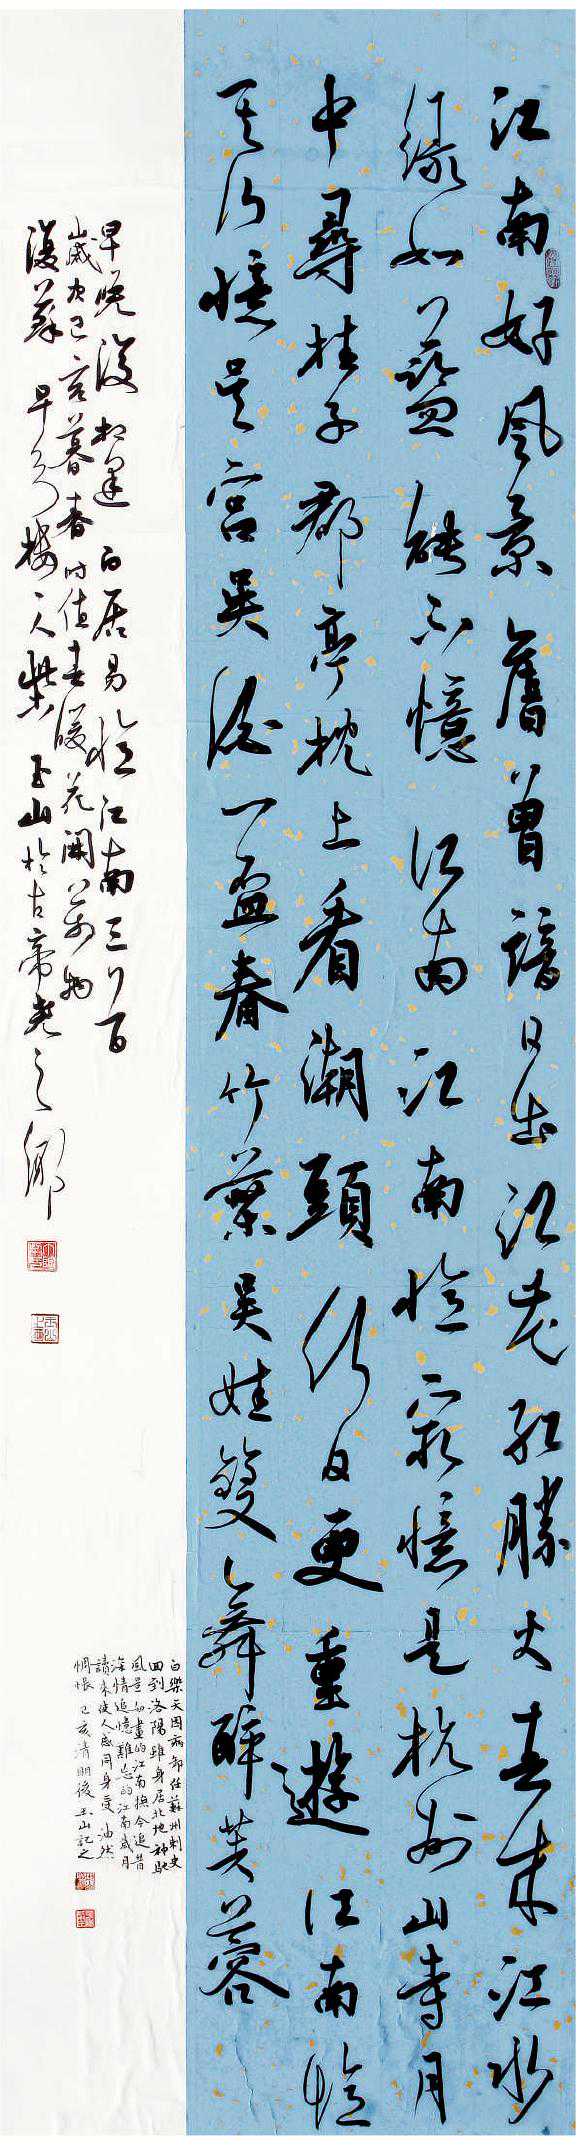 江南好風景舊曾諳日出江花紅勝火春來江水
綠如藍能不憶江南江南憶最憶是杭州山寺月
中尋桂子郡亭枕上看潮頭何日更重遊江南憶
其次憶吳宮吳酒一盃春竹葉吳娃雙舞醉芙蓉
早晚復相逢白居易憶江南三首
歲次己亥暮春時值春暖花開萬物
復蘇 樓主人 玉山於古帝堯之鄉
白樂天因病卸任蘇州刺史
回到洛陽雖身居北地神馳
風景如畫的江南撫今追昔
深情追憶難忘的江南歲月
讀來使人感同身受油然
惆悵己亥清明後玉山記之